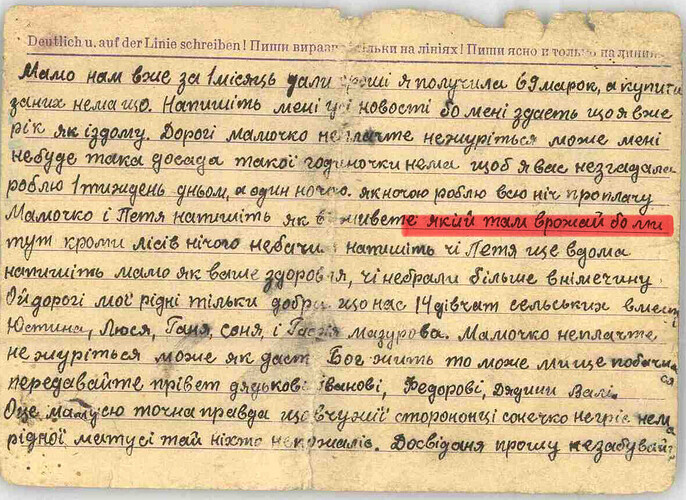 Deutlich u. auf der Linie schreiben! Пиши виразно тільки на лініях! Пиши ясно и только на линии
Мамо нам вже за 1 місяць дали гроші я получила 69 марок, а купити
заних нема що. Напишіть мені усі новості бо мені здасть що я вже
рік як іздому. Дорогі мамочко неплачте нежуріться може мені
небуде така досада такої годиночки нема щоб я вас незгадала
роблю 1 тиждень дньом, а один ночю. як ночою роблю всю ніч проплачу
Мамочко і Петя напишіть як ви живете який там врожай бо ми
тут кроми лісів нічого небачим напишіть чі Петя ще вдома
напишіть мамо як ваше здоровя, чі небрали більше внімечину
Ой дорогі мої рідні тільки добре що нас 14 дівчат сельських вмест
Юстина, Люся, Ганя, соня, і мазурова. Мамочко неплачте
не журіться може як даст Бог жить то може ми ще побачимся
передавайте прівет дядькові іванові, Федорові, Дядини Валі.
Оце мамусю точна правда що вчужії сторононці сонечко негріє нема
рідної матусі тай ніхто непожаліє. Досвіданя прошу незабувайт